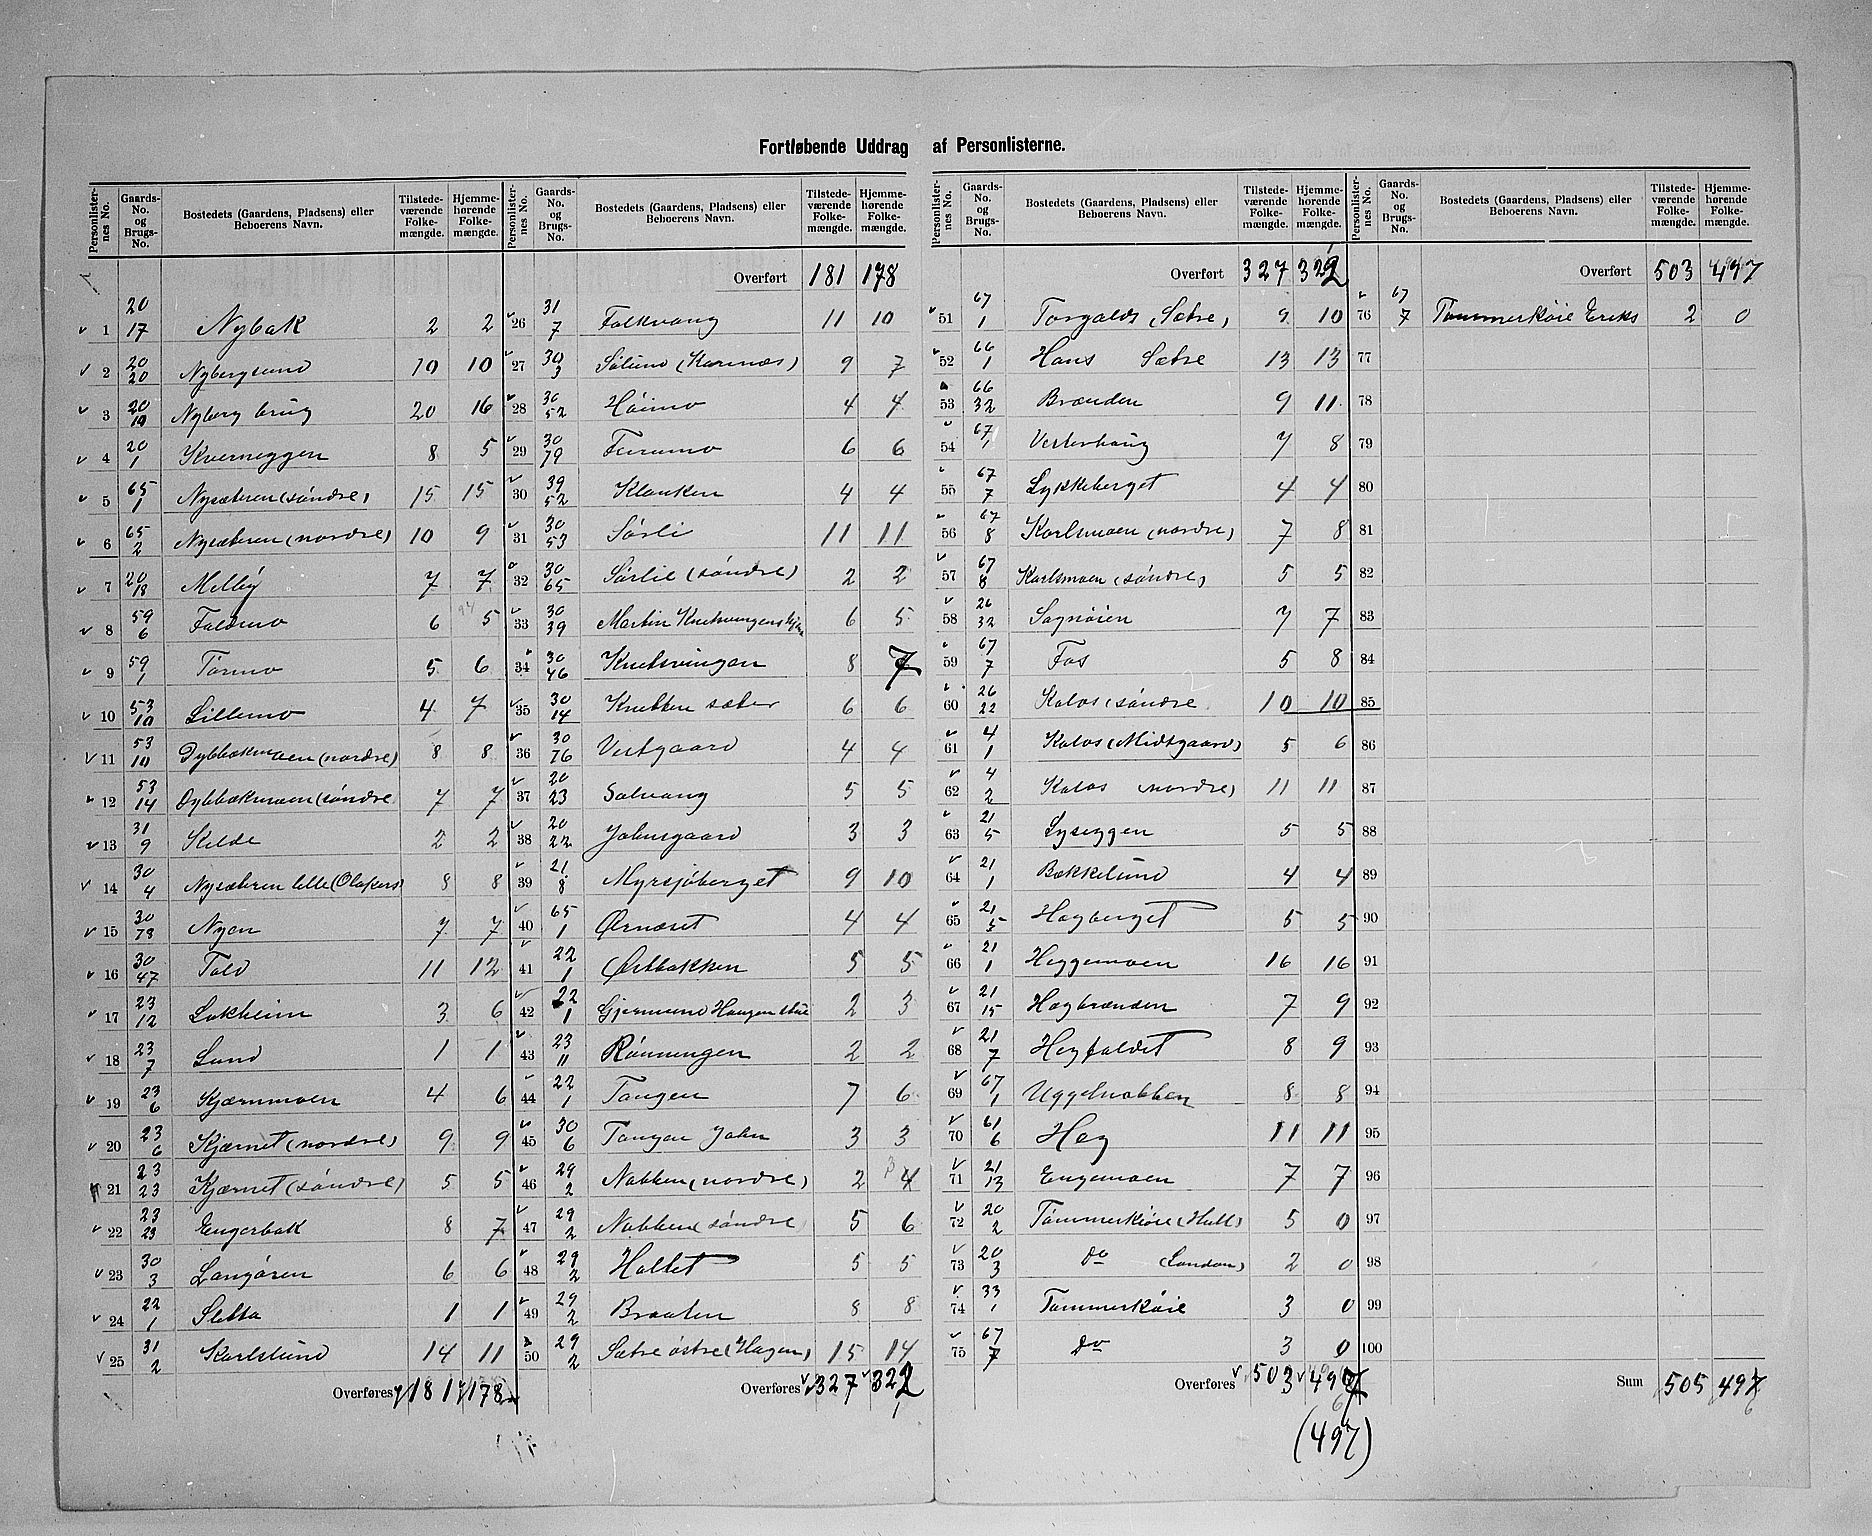 Fortløbende Uddrag af Personlisterne.
Personlisternes No. | Gaards-No. og Brugs-No. | Bostedets (Gaardens, Pladsens) eller Beboerens Navn. | Tilstedeværende Folkemængde. | Hjemmehørende Folkemængde.
1 | 20/17 | Nybak | 2 | 2
2 | 20/20 | Nybergsund | 10 | 10
3 | 20/10 | Nyberg brug | 20 | 16
4 | 20/1 | Kverneggen | 8 | 5
5 | 65/1 | Nysæteren (søndre) | 15 | 15
6 | 65/2 | Nysæteren (nordre) | 10 | 9
7 | 20/18 | Melby | 7 | 7
8 | 59/6 | Faldmo | 6 | 5
9 | 59/1 | Tørmo | 5 | 6
10 | 53/10 | Lillemo | 4 | 7
11 | 53/10 | Dybbækmoen (nordre) | 8 | 8
12 | 53/14 | Dybbækmoen (søndre | 7 | 7
13 | 31/9 | Kilde | 2 | 2
14 | 30/4 | Nysæteren lille (Olakers) | 8 | 8
15 | 30/78 | Nyen | 7 | 7
16 | 30/47 | Told | 11 | 12
17 | 23/12 | Lokheim | 3 | 6
18 | 23/7 | Lund | 1 | 1
19 | 23/6 | Kjærnmoen | 4 | 6
20 | 23/6 | Kjærnet (nordre) | 9 | 9
21 | 23/23 | Kjærnet (søndre) | 5 | 5
22 | 23/23 | Engerbak | 8 | 7
23 | 30/3 | Langøren | 6 | 6
24 | 22/1 | Sletta | 1 | 1
25 | 31/2 | Karlslund | 14 | 11
Overføres 181 178
Personlisternes No. | Gaards-No. og Brugs-No. | Bostedets (Gaardens, Pladsens) eller Beboerens Navn. | Tilstedeværende Folkemængde. | Hjemmehørende Folkemængde.
Overført 181 178
26 | 31/7 | Folkvang | 11 | 10
27 | 30/3 | Sølund (Karnæs) | 9 | 7
28 | 30/52 | Høimo | 4 | 4
29 | 30/79 | Furumo | 6 | 6
30 | 39/52 | Klanken | 4 | 4
31 | 30/53 | Sørli | 11 | 11
32 | 30/65 | Sørlie (søndre) | 2 | 2
33 | 30/39 | Martin | 6 | 5
34 | 30/46 | Knutsvingen | 8 | 7
35 | 30/14 | Knutten sæter | 6 | 6
36 | 30/76 | Vestgaard | 4 | 4
37 | 20/23 | Solvang | 5 | 5
38 | 20/22 | Johnsgaard | 3 | 3
39 | 21/8 | Myrsjøberget | 9 | 10
40 | 65/1 | Ørnæset | 4 | 4
41 | 22/1 | Østbakken | 5 | 5
42 | 22/1 | Gjermund Haugen | 2 | 3
43 | 23/11 | Rønningen | 2 | 2
44 | 22/1 | Tangen | 7 | 6
45 | 30/6 | Tangen John | 3 | 3
46 | 29/2 | Nabben (nordre) | 2 | 4
47 | 29/2 | Nabben (søndre | 5 | 6
48 | 29/2 | Holtet | 5 | 5
49 | 29/2 | Braaten | 8 | 8
50 | 29/2 | Sætre østre (Hagen) | 15 | 14
Overføres 327 322
1
Personlisternes No. | Gaards-No. og Brugs-No. | Bostedets (Gaardens, Pladsens) eller Beboerens Navn. | Tilstedeværende Folkemængde. | Hjemmehørende Folkemængde.
Overført 327 322
51 | 67/1 | Torgalds (Sætre) | 9 | 10
52 | 66/1 | Hans Sætre | 13 | 13
53 | 66/32 | Brænden | 9 | 11
54 | 67/1 | Vesterhaug | 7 | 8
55 | 67/7 | Lykkeberget | 4 | 4
56 | 67/8 | Karlsmoen (nordre) | 7 | 8
57 | 67/8 | Karlsmoen (søndre) | 5 | 5
58 | 26/32 | Sagnøien | 7 | 7
59 | 67/7 | Fos | 5 | 8
60 | 26/22 | Kolos (søndre | 10 | 10
61 | 4/1 | Kolos (Midtgaard) | 5 | 6
62 | 4/2 | Kolos nordre) | 11 | 11
63 | 21/5 | Lyseggen | 5 | 5
64 | 21/1 | Bækkelund | 4 | 4
65 | 21/5 | Hegberget | 5 | 5
66 | 21/1 | Heggemoen | 16 | 16
67 | 21/15 | Hegbrænden | 7 | 9
68 | 21/7 | Hegfaldet | 8 | 9
69 | 67/1 | Uggelnabben | 8 | 8
70 | 61/6 | Heg | 11 | 11
71 | 21/13 | Engemoen | 7 | 7
72 | 20/2 | Tømmerkøie (Hull) | 5 | 0
73 | 20/3 | do (London) | 2 | 0
74 | 33/1 | Tømmerkøie | 3 | 0
75 | 67/7 | do | 3 | 0
Overføres 503 497
(497)
Personlisternes No. | Gaards-No. og Brugs-No. | Bostedets (Gaardens, Pladsens) eller Beboerens Navn. | Tilstedeværende Folkemængde. | Hjemmehørende Folkemængde.
Overført 503 497
76 | 67/7 | Tømmerkøie Eriks | 2 | 0
77
78
79
80
81
82
83
84
85
86
87
88
89
90
91
92
93
94
95
96
97
98
99
100
Sum 505 497